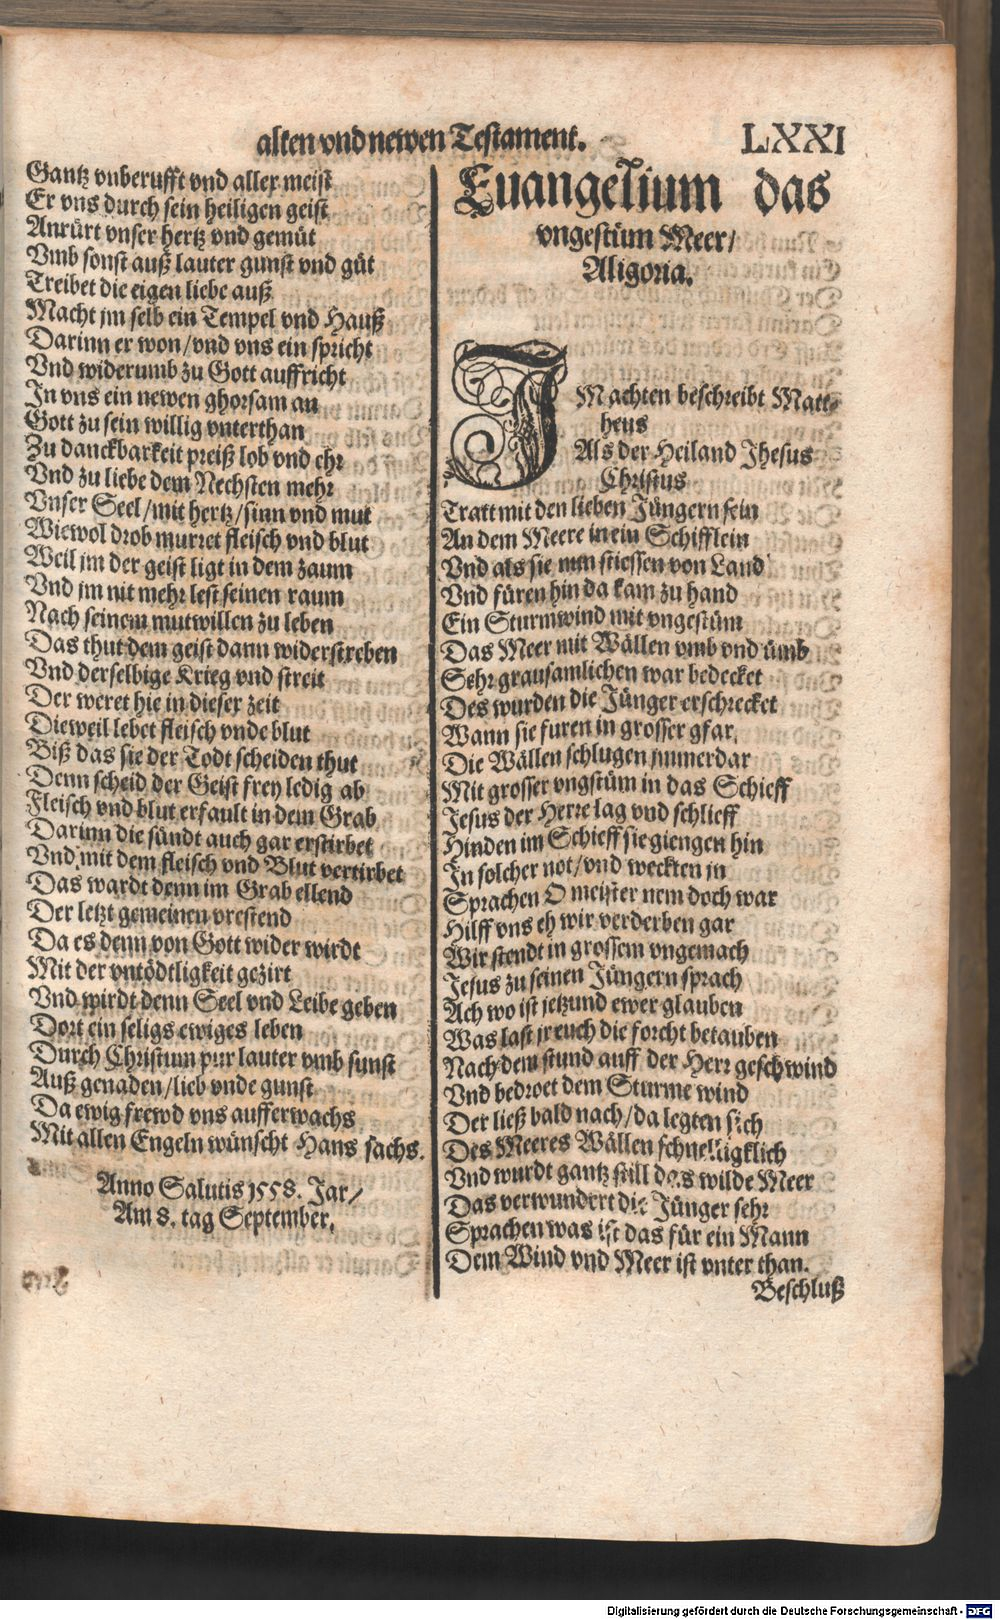 alten vnd newen Testament. LXXI
Gantz vnberufft vnd aller meist
Er vns durch sein heiligen geist
Anrürt vnser hertz vnd gemüt
Vmb sonst auß lauter gunst vnd güt
Treibet die eigen liebe auß
Macht jm selb ein Tempel vnd Hauß
Darinn er won/vnd vns ein spricht
Vnd widerumb zu Gott auffricht
In vns ein newen ghorsam an
Gott zu sein willig vnterthan
Zu danckbarkeit preiß lob vnd ehr
Vnd zu liebe dem Nechsten mehr
Vnser Seel/mit hertz/sinn vnd mut
Wiewol drob murret fleisch vnd blut
Weil jm der geist ligt in dem zaum
Vnd jm nit mehr lest seinen raum
Nach seinem mutwillen zu leben
Das thut dem geist dann widerstreben
Vnd derselbige Krieg vnd streit
Der weret hie in dieser zeit
Dieweil lebet fleisch vnde blut
Biß das sie der Todt scheiden thut
Denn scheid der Geist frey ledig ab
Fleisch vnd blut erfault in dem Grab
Darinn die sündt auch gar erstirbet
Vnd mit dem fleisch vnd Blut vertirbet
Das wardt denn im Grab ellend
Der letzt gemeinen vrestend
Da es denn von Gott wider wirdt
Mit der vntödtligkeit gezirt
Vnd wirdt denn Seel vnd Leibe geben
Dort ein seligs ewiges leben
Durch Christum pur lauter vmb sunst
Auß genaden/lieb vnde gunst
Da ewig frewd vns aufferwachs
Mit allen Engeln wünscht Hans sachs.
Anno Salutis 1558. Jar/
Am 8. tag September.
Euangelium das
vngestüm Meer/
Aligoria.
IMachten beschreibt Matt-
heus
Als der Heiland Jhesus
Christus
Tratt mit den lieben Jüngern sein
An dem Meere in ein Schifflein
Vnd als sie nun stiessen von Land
Vnd füren hin da kam zu hand
Ein Sturmwind mit vngestüm
Das Meer mit Wällen vmb vnd ümb
Sehr grausamlichen war bedecket
Des wurden die Jünger erschrecket
Wann sie furen in grosser gfar.
Die Wällen schlugen jmmerdar
Mit grosser vngstüm in das Schieff
Jesus der Herre lag vnd schlieff
Hinden im Schieff sie giengen hin
In solcher not/vnd weckten jn
Sprachen O meister nem doch war
Hilff vns eh wir verderben gar
Wir stendt in grossem vngemach
Jesus zu seinen Jüngern sprach
Ach wo ist jetzund ewer glauben
Was last jr euch die forcht betauben
Nach dem stund auff der Herr geschwind
Vnd bedroet dem Sturme wind
Der ließ bald nach/da legten sich
Des Meeres Wällen schnelligklich
Vnd wurdt gantz still das wilde Meer
Das verwundert die Jünger sehr
Sprachen was ist das für ein Mann
Dem Wind vnd Meer ist vnter than.
Beschluß
Digitalisierung gefördert durch die Deutsche Forschungsgemeinschaft - DFG